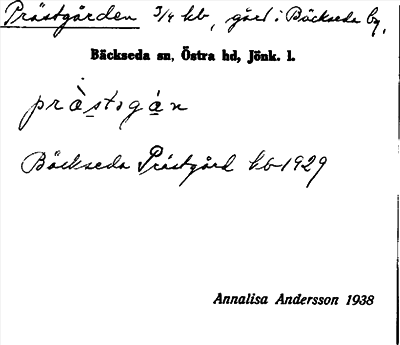 Prästgården 3/4 kb, gård i Bäckseda by,
Bäckseda sn, Östra hd, Jönk. l.
pràstgán
Bäckseda Prästgård kb 1929
Annalisa Andersson 1938